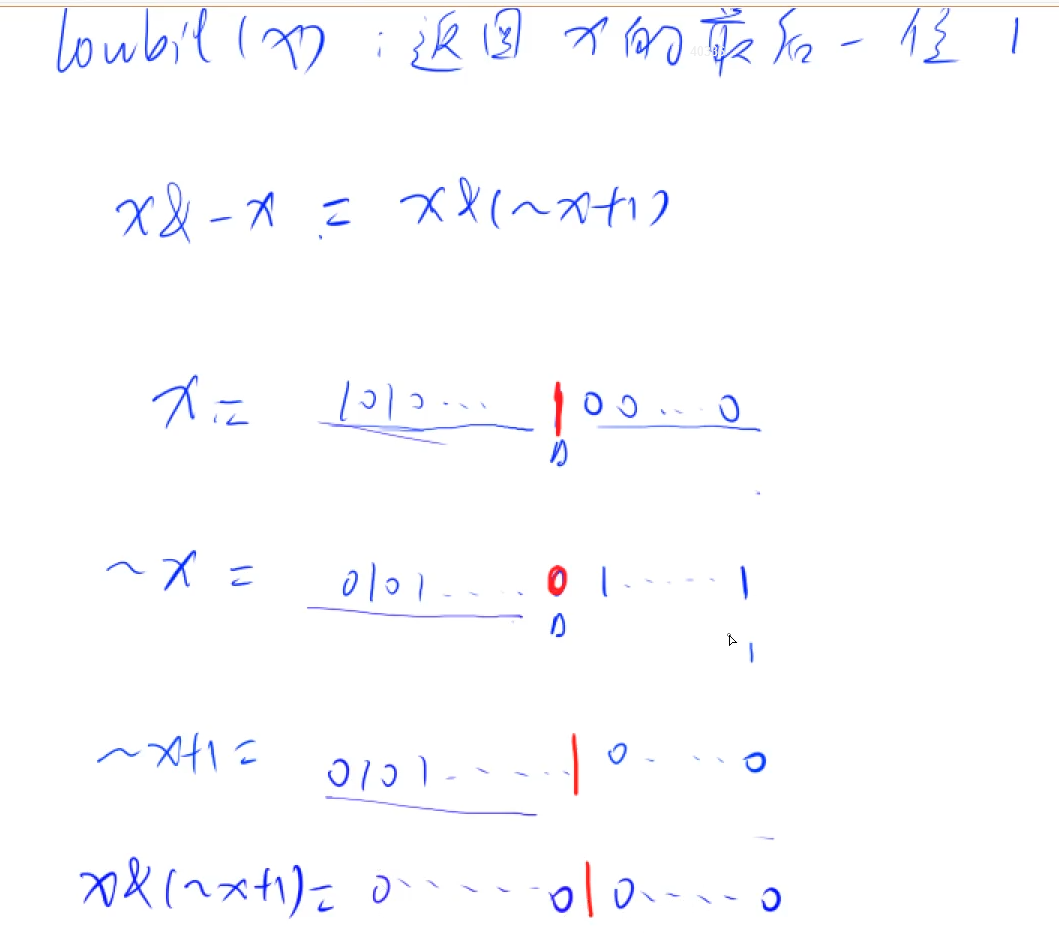 lowbit(x) : 返回 x 的最后一位 1
x&-x = x&(~x+1)
x = 1010... 1 00...0
~x = 0101.... 0 1......1
1
~x+1 = 0101...... 1 0....0
x&(~x+1) = 0......0 1 0.....0